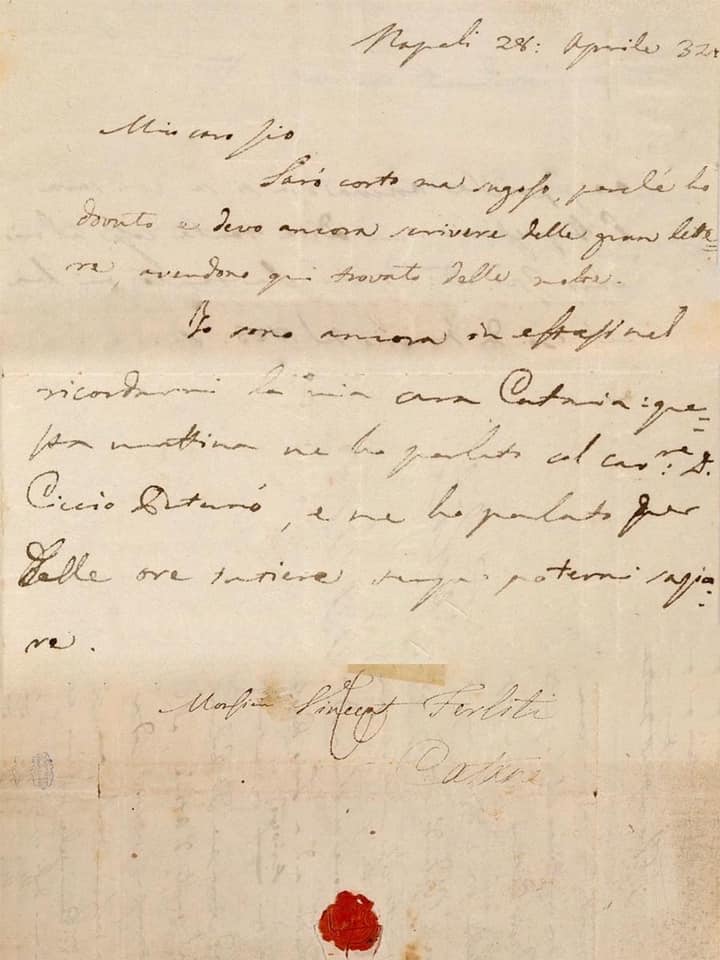 Napoli 28: Aprile 32.
Mio caro Zio
Sarò corto ma sugoso, perché ho
dovuto e devo ancora scrivere delle gran lette=
re, avendone qui trovato delle molte.
Io sono ancora in estasi nel
ricordarmi la mia cara Catania: que=
sta mattina ne ho parlato col cav:re D.
Ciccio, e ne ho parlato per
delle ore intiere senza potermi sazia=
re.
Monsieur Vincent Ferliti
Catane